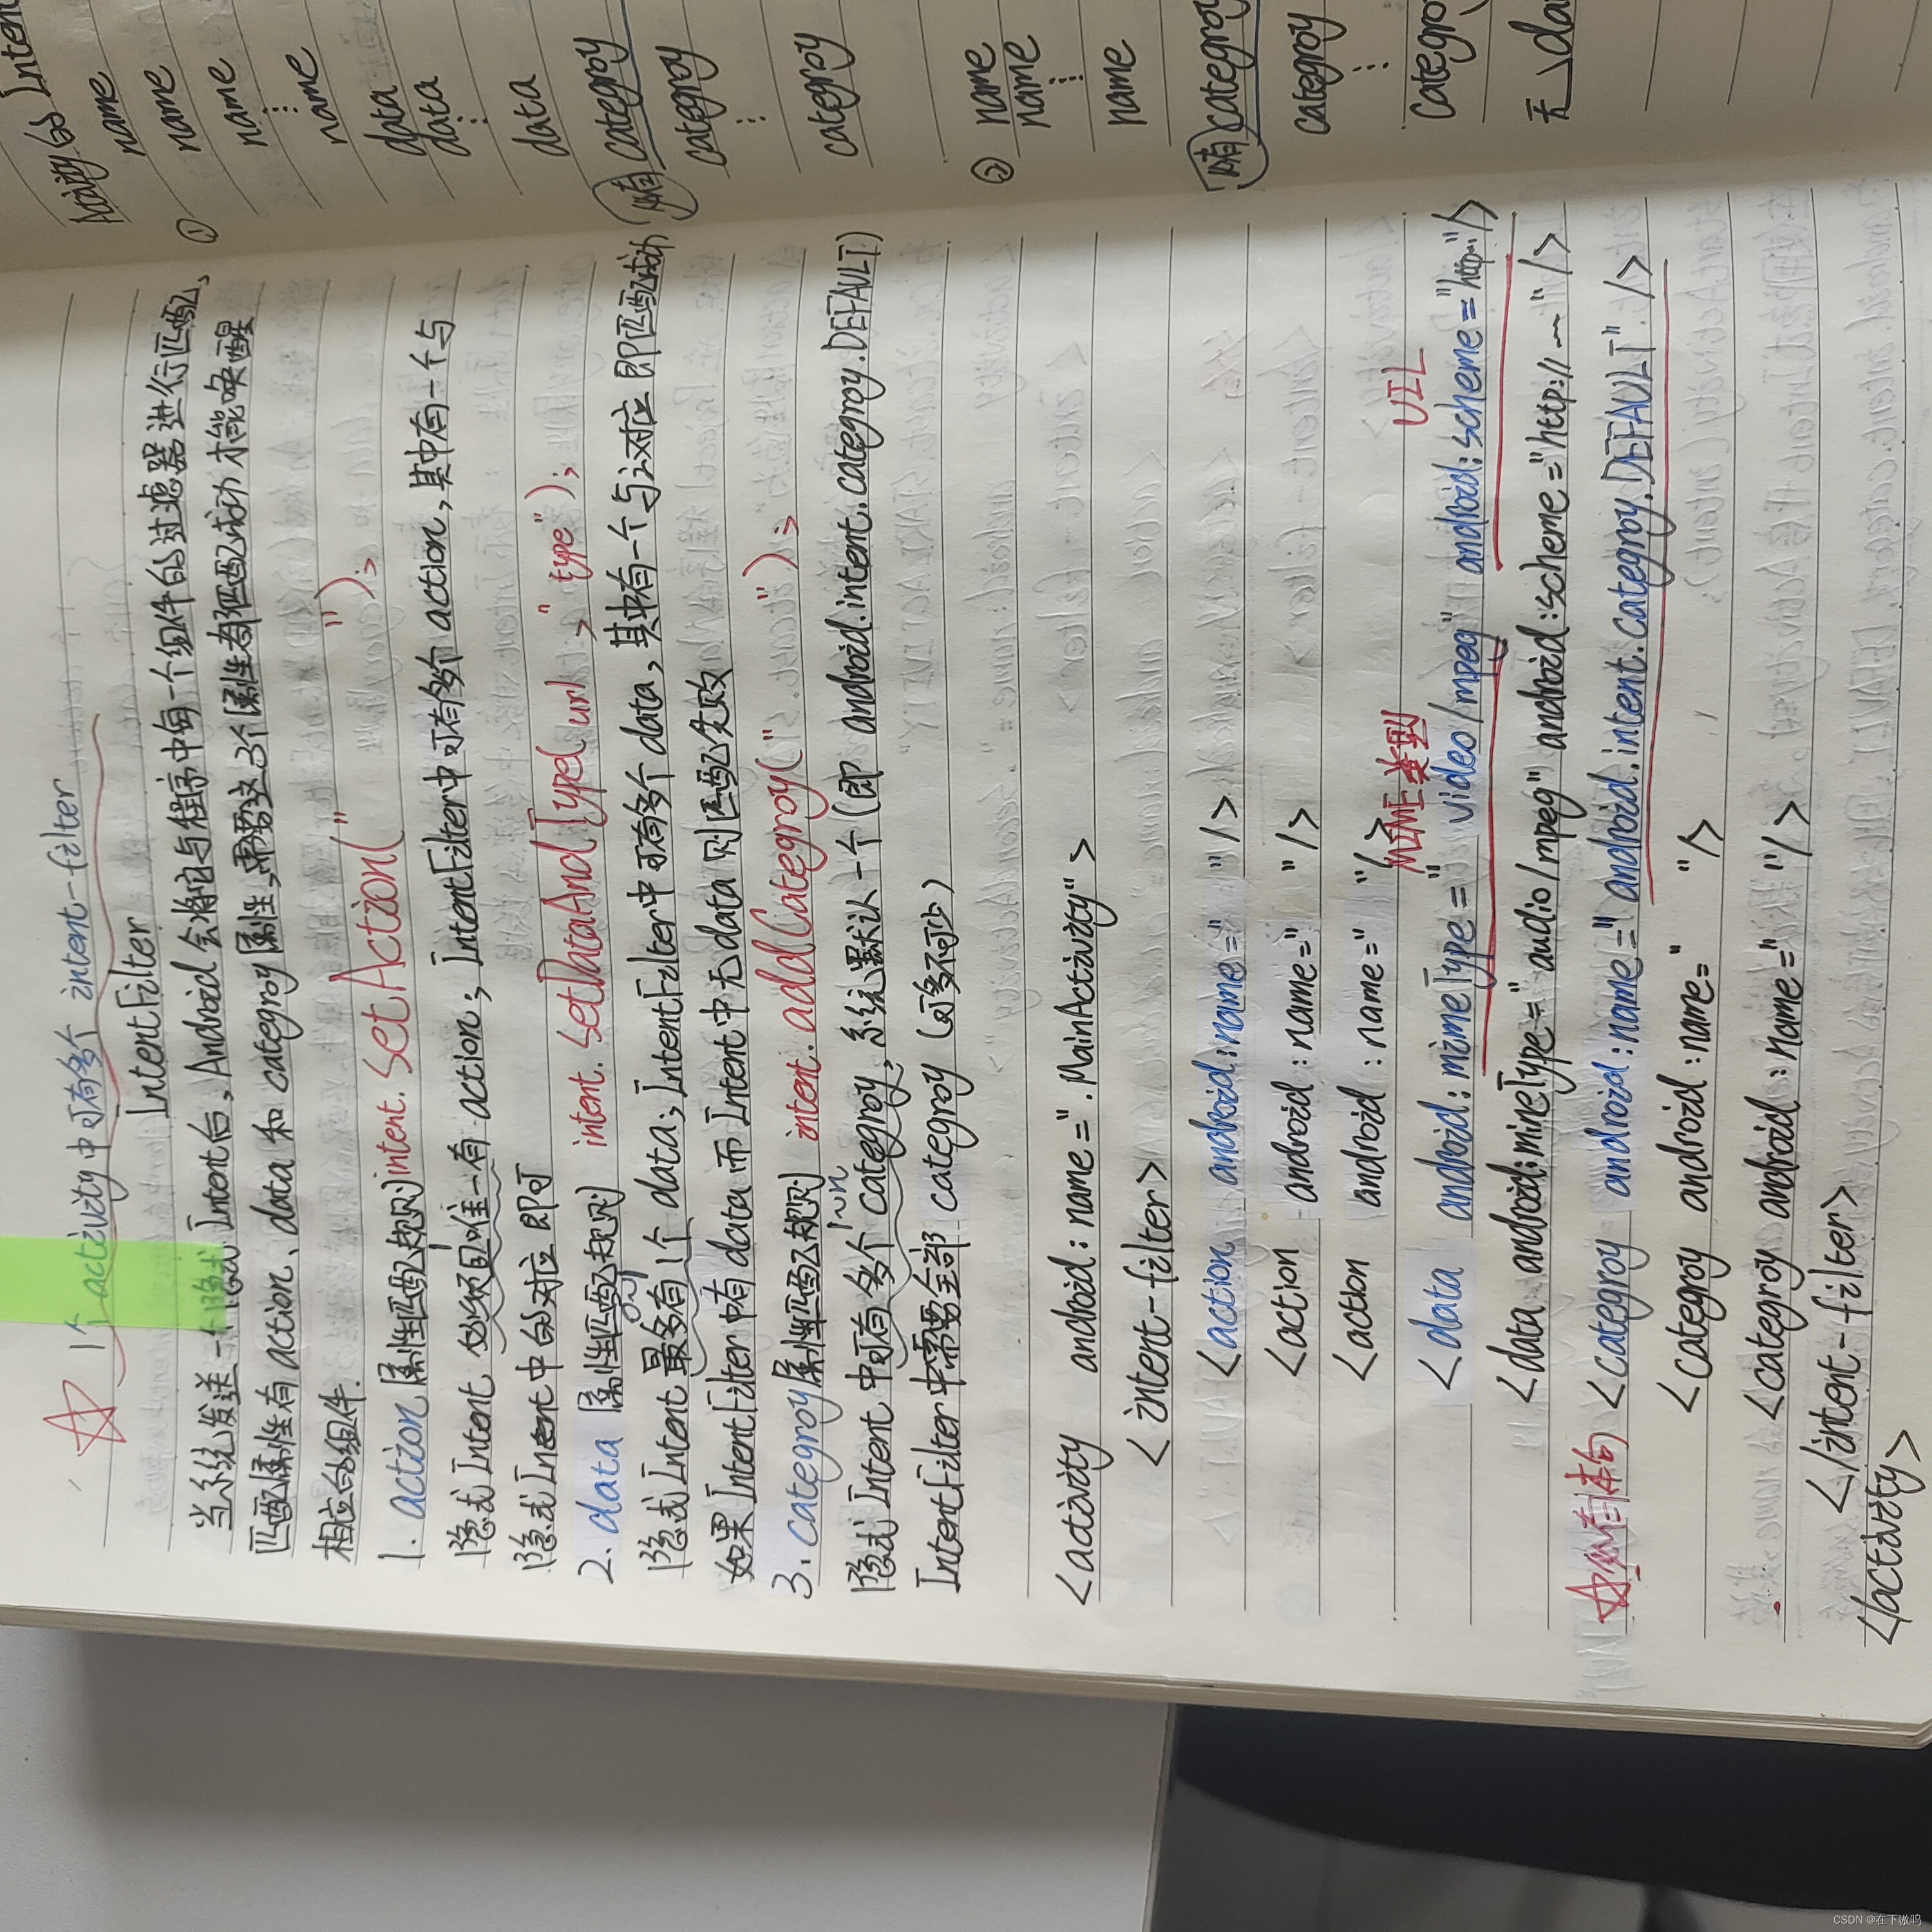 ☆ 1个activity中可有多个 intent-filter
IntentFilter
当系统发送一个隐式Intent后,Android会将它与程序中每一个组件的过滤器进行匹配,
匹配属性有action、data 和 categroy属性,需要这3个属性都匹配成功才能唤醒
相应的组件.
1. action属性匹配规则 intent.setAction(" ");
隐式Intent 必须且唯一有 action; IntentFilter中可有多个 action,其中有一个与
隐式Intent中的对应即可
2. data 属性匹配规则 intent.setDataAndType(url,"type");
0~1
隐式Intent 最多有1个 data; IntentFilter中可有多个data,其中有一个与之对应 即匹配成功
如果IntentFilter中有data而Intent中无data 则匹配失败
3. categroy属性匹配规则 intent.addCategroy(" ");
1~n
隐式Intent 中可有多个categroy,系统默认一个(即 android.intent.categroy.DEFAULT)
IntentFilter中需要全部 categroy (可多不可少)
<activity android:name=".MainActivity">
<intent-filter>
<action android:name=" "/>
<action android:name=" "/>
<action android:name=" "/>
MIME类型 UIL
<data android:mimeType="video/mpeg" android:scheme="http..."/>
<data android:mimeType="audio/mpeg" android:scheme="http://~"/>
☆必有本句 <categroy android:name="android.intent.categroy.DEFAULT"/>
<categroy android:name=" "/>
<categroy android:name=" "/>
</intent-filter>
</activity>
Activity的Inten
name
① name
name
⋮
name
data
data
⋮
data
必有 categroy
categroy
⋮
categroy
② name
name
⋮
name
必有 categroy
categroy
⋮
categro
无 da
CSDN @在下傲呜